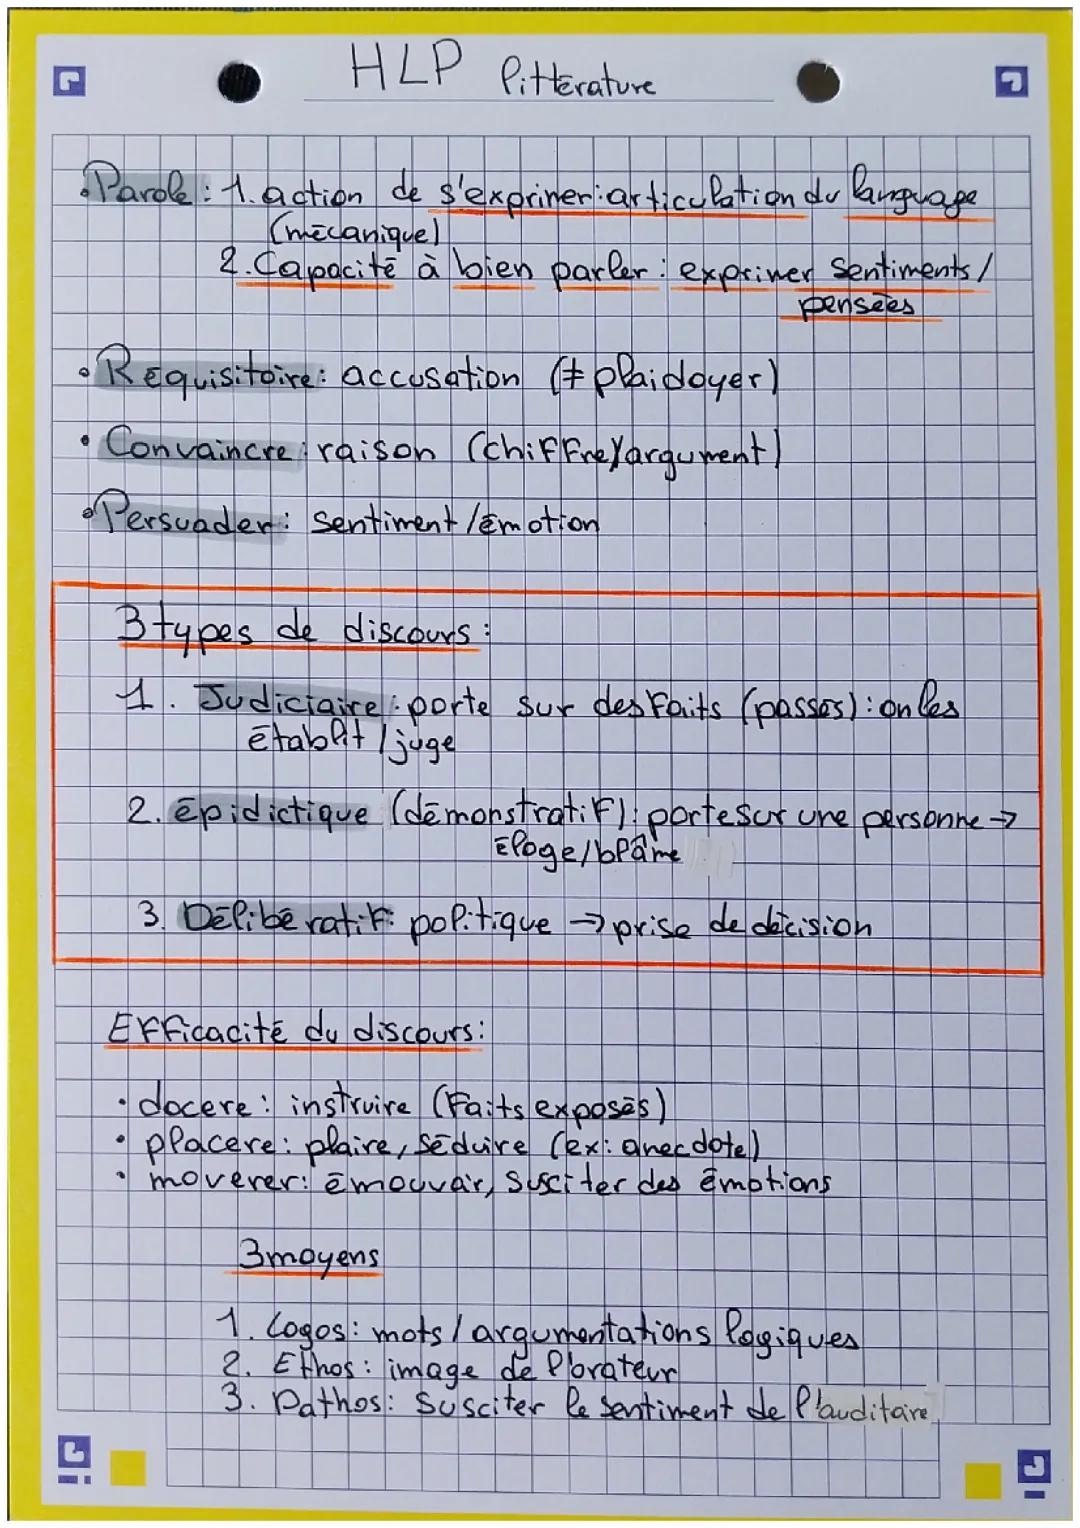 HLP littérature
• Parole : 1. action de s'exprimer : articulation du language
(mécanique)
2. Capacité à bien parler : exprimer sentiments /
pensées
• Réquisitoire : accusation (≠ plaidoyer)
• Convaincre : raison (chiffre/argument)
• Persuader : sentiment / émotion
3 types de discours :
1. Judiciaire : porte sur des faits (passés) : on les
établit / juge
2. épidictique (démonstratif) : porte sur une personne →
Éloge / blâme
3. Délibératif : politique → prise de décision
Efficacité du discours :
• docere : instruire (faits exposés)
• placere : plaire, séduire (ex : anecdote)
• moverer : émouvoir, susciter des émotions
3 moyens
1. Logos : mots / argumentations logiques
2. Ethos : image de l'orateur
3. Pathos : Susciter le sentiment de l'auditoire